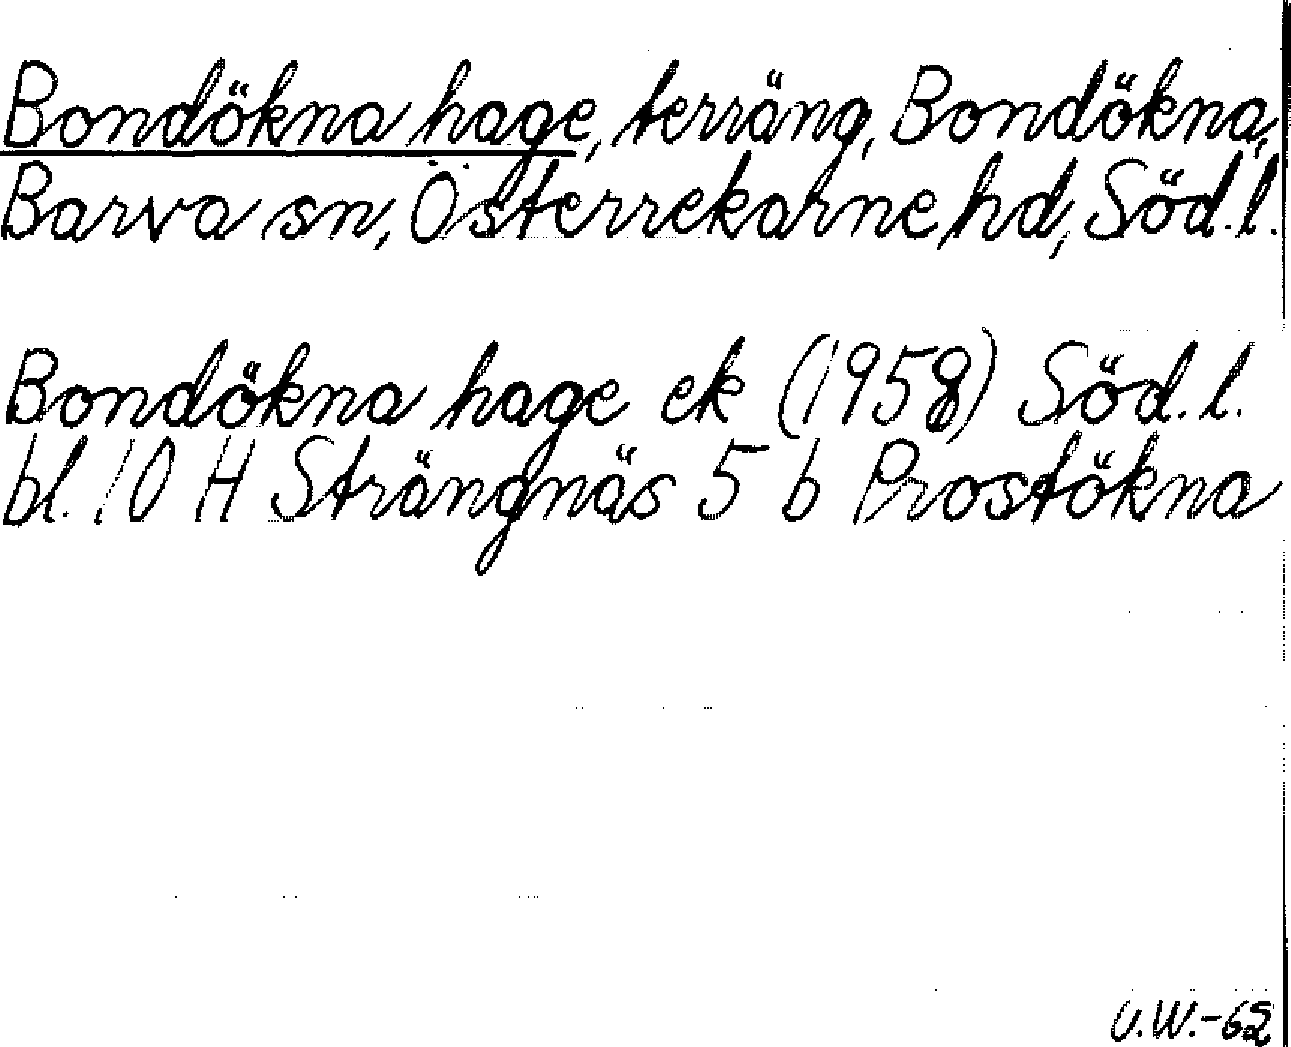 Bondökna hage, terräng, Bondökna,
Barva sn, Österrekarne hd, Söd.l.
Bondökna hage ek (1958) Söd.l.
bl. 10 H Strängnäs 5 b Prostökna
U.W.-62